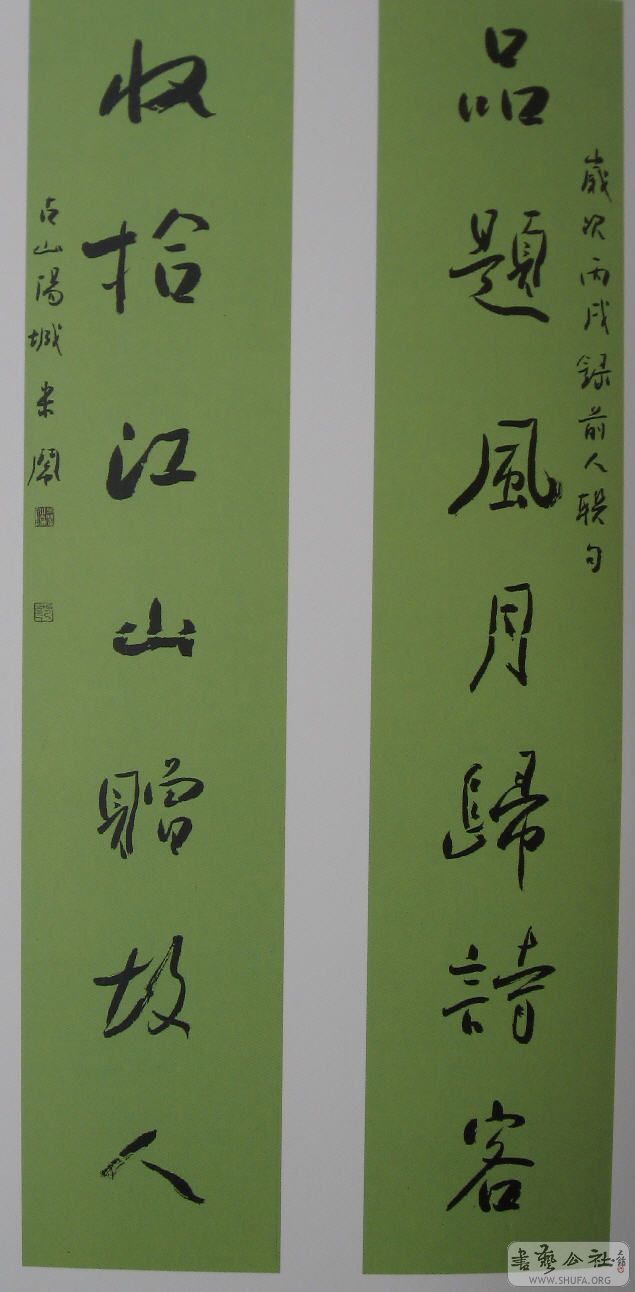 歲次丙戌錄前人联句
品題風月歸詩客
收拾江山贈故人
古山陽城米鬧
書藝公社
WWW.SHUFA.ORG